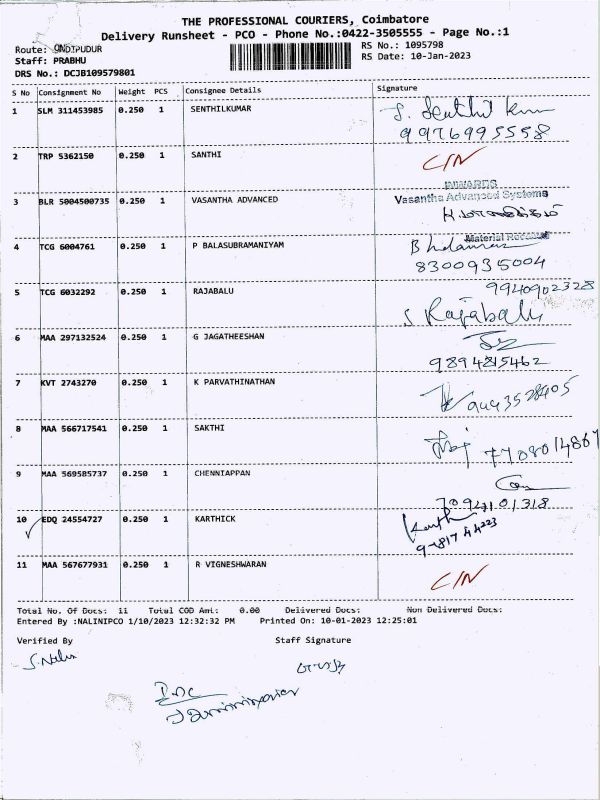 THE PROFESSIONAL COURIERS, Coimbatore
Delivery Runsheet - PCO - Phone No.:0422-3505555 - Page No.:1
Route: GNDIPUDUR
RS No.: 1095798
Staff: PRABHU
RS Date: 10-Jan-2023
DRS No.: DCJB109579801
S No Consignment No Weight PCS Consignee Details Signature
1 SLM 311453985 0.250 1 SENTHILKUMAR S. Senthil Kum
9976995558
2 TRP 5362150 0.250 1 SANTHI C/N
INWARDS
3 BLR 5004500735 0.250 1 VASANTHA ADVANCED Vasantha Advanced Systems
Material Received
4 TCG 6004761 0.250 1 P BALASUBRAMANIYAM
8300935004
5 TCG 6032292 0.250 1 RAJABALU 9940902328
S Rajabalu
6 MAA 297132524 0.250 1 G JAGATHEESHAN
9894815462
7 KVT 2743270 0.250 1 K PARVATHINATHAN
8 MAA 566717541 0.250 1 SAKTHI 7708014867
9 MAA 569585737 0.250 1 CHENNIAPPAN
7094101318
10 EDQ 24554727 0.250 1 KARTHICK
11 MAA 567677931 0.250 1 R VIGNESHWARAN C/N
Total No. Of Docs: 11 Total COD Amt: 0.00 Delivered Docs: Non Delivered Docs:
Entered By :NALINIPCO 1/10/2023 12:32:32 PM Printed On: 10-01-2023 12:25:01
Verified By Staff Signature